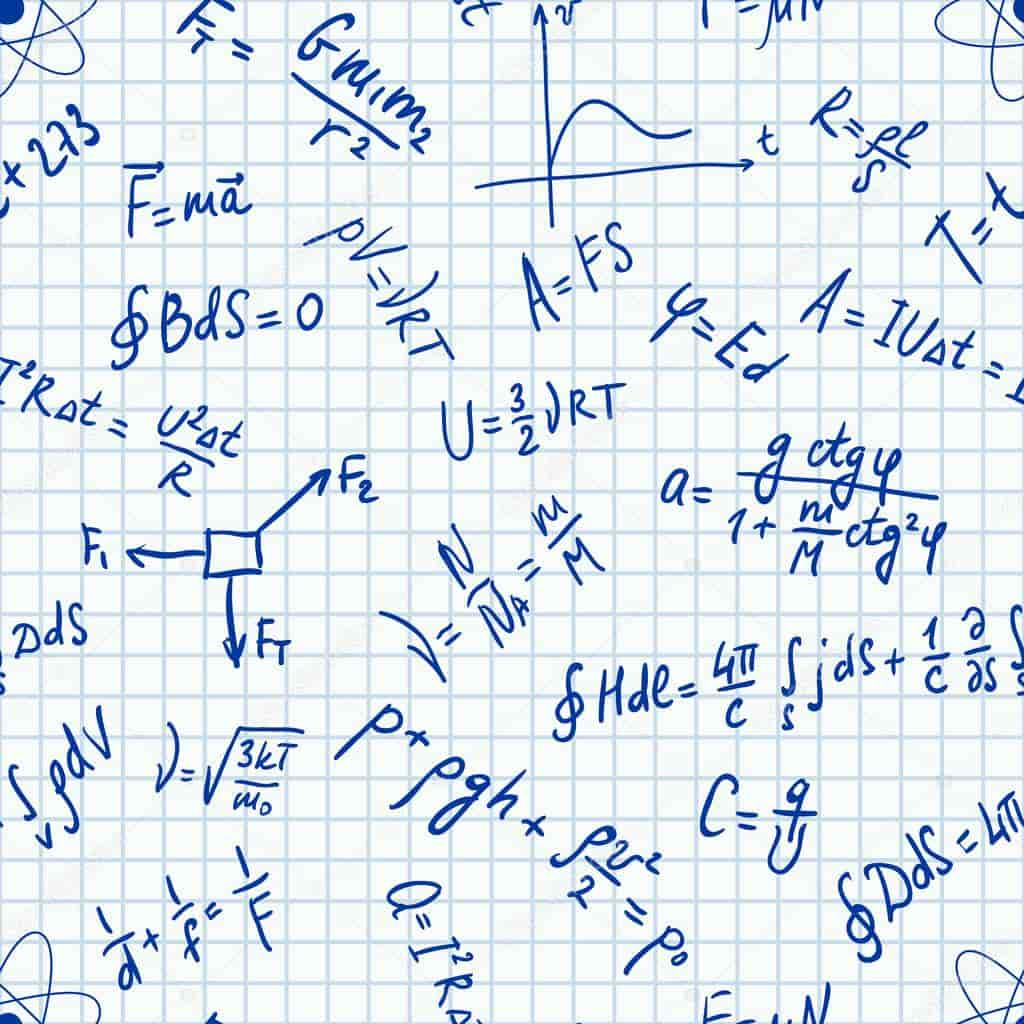 F_T = Gm₁m₂/r²
v
t
= μN
R = ρl/S
x 273
F⃗ = ma⃗
pV = νRT
A = FS
T = x
∮BdS = 0
φ = Ed
A = IUΔt =
I²RΔt = U²Δt/R
U = 3/2 νRT
a = g ctgφ / 1 + m/M ctg²φ
F₁
F₂
F_T
ν = N/N_A = m/M
DdS
∮Hdl = 4π/c ∫_s jdS + 1/c ∂/∂s ∫_s
∫_v ρdV
ν = √3kT/m₀
p × ρgh × ρv²/2 = p₀
C = q/U
∮DdS = 4π
1/d + 1/f = 1/F
Q = I²R
F = μN